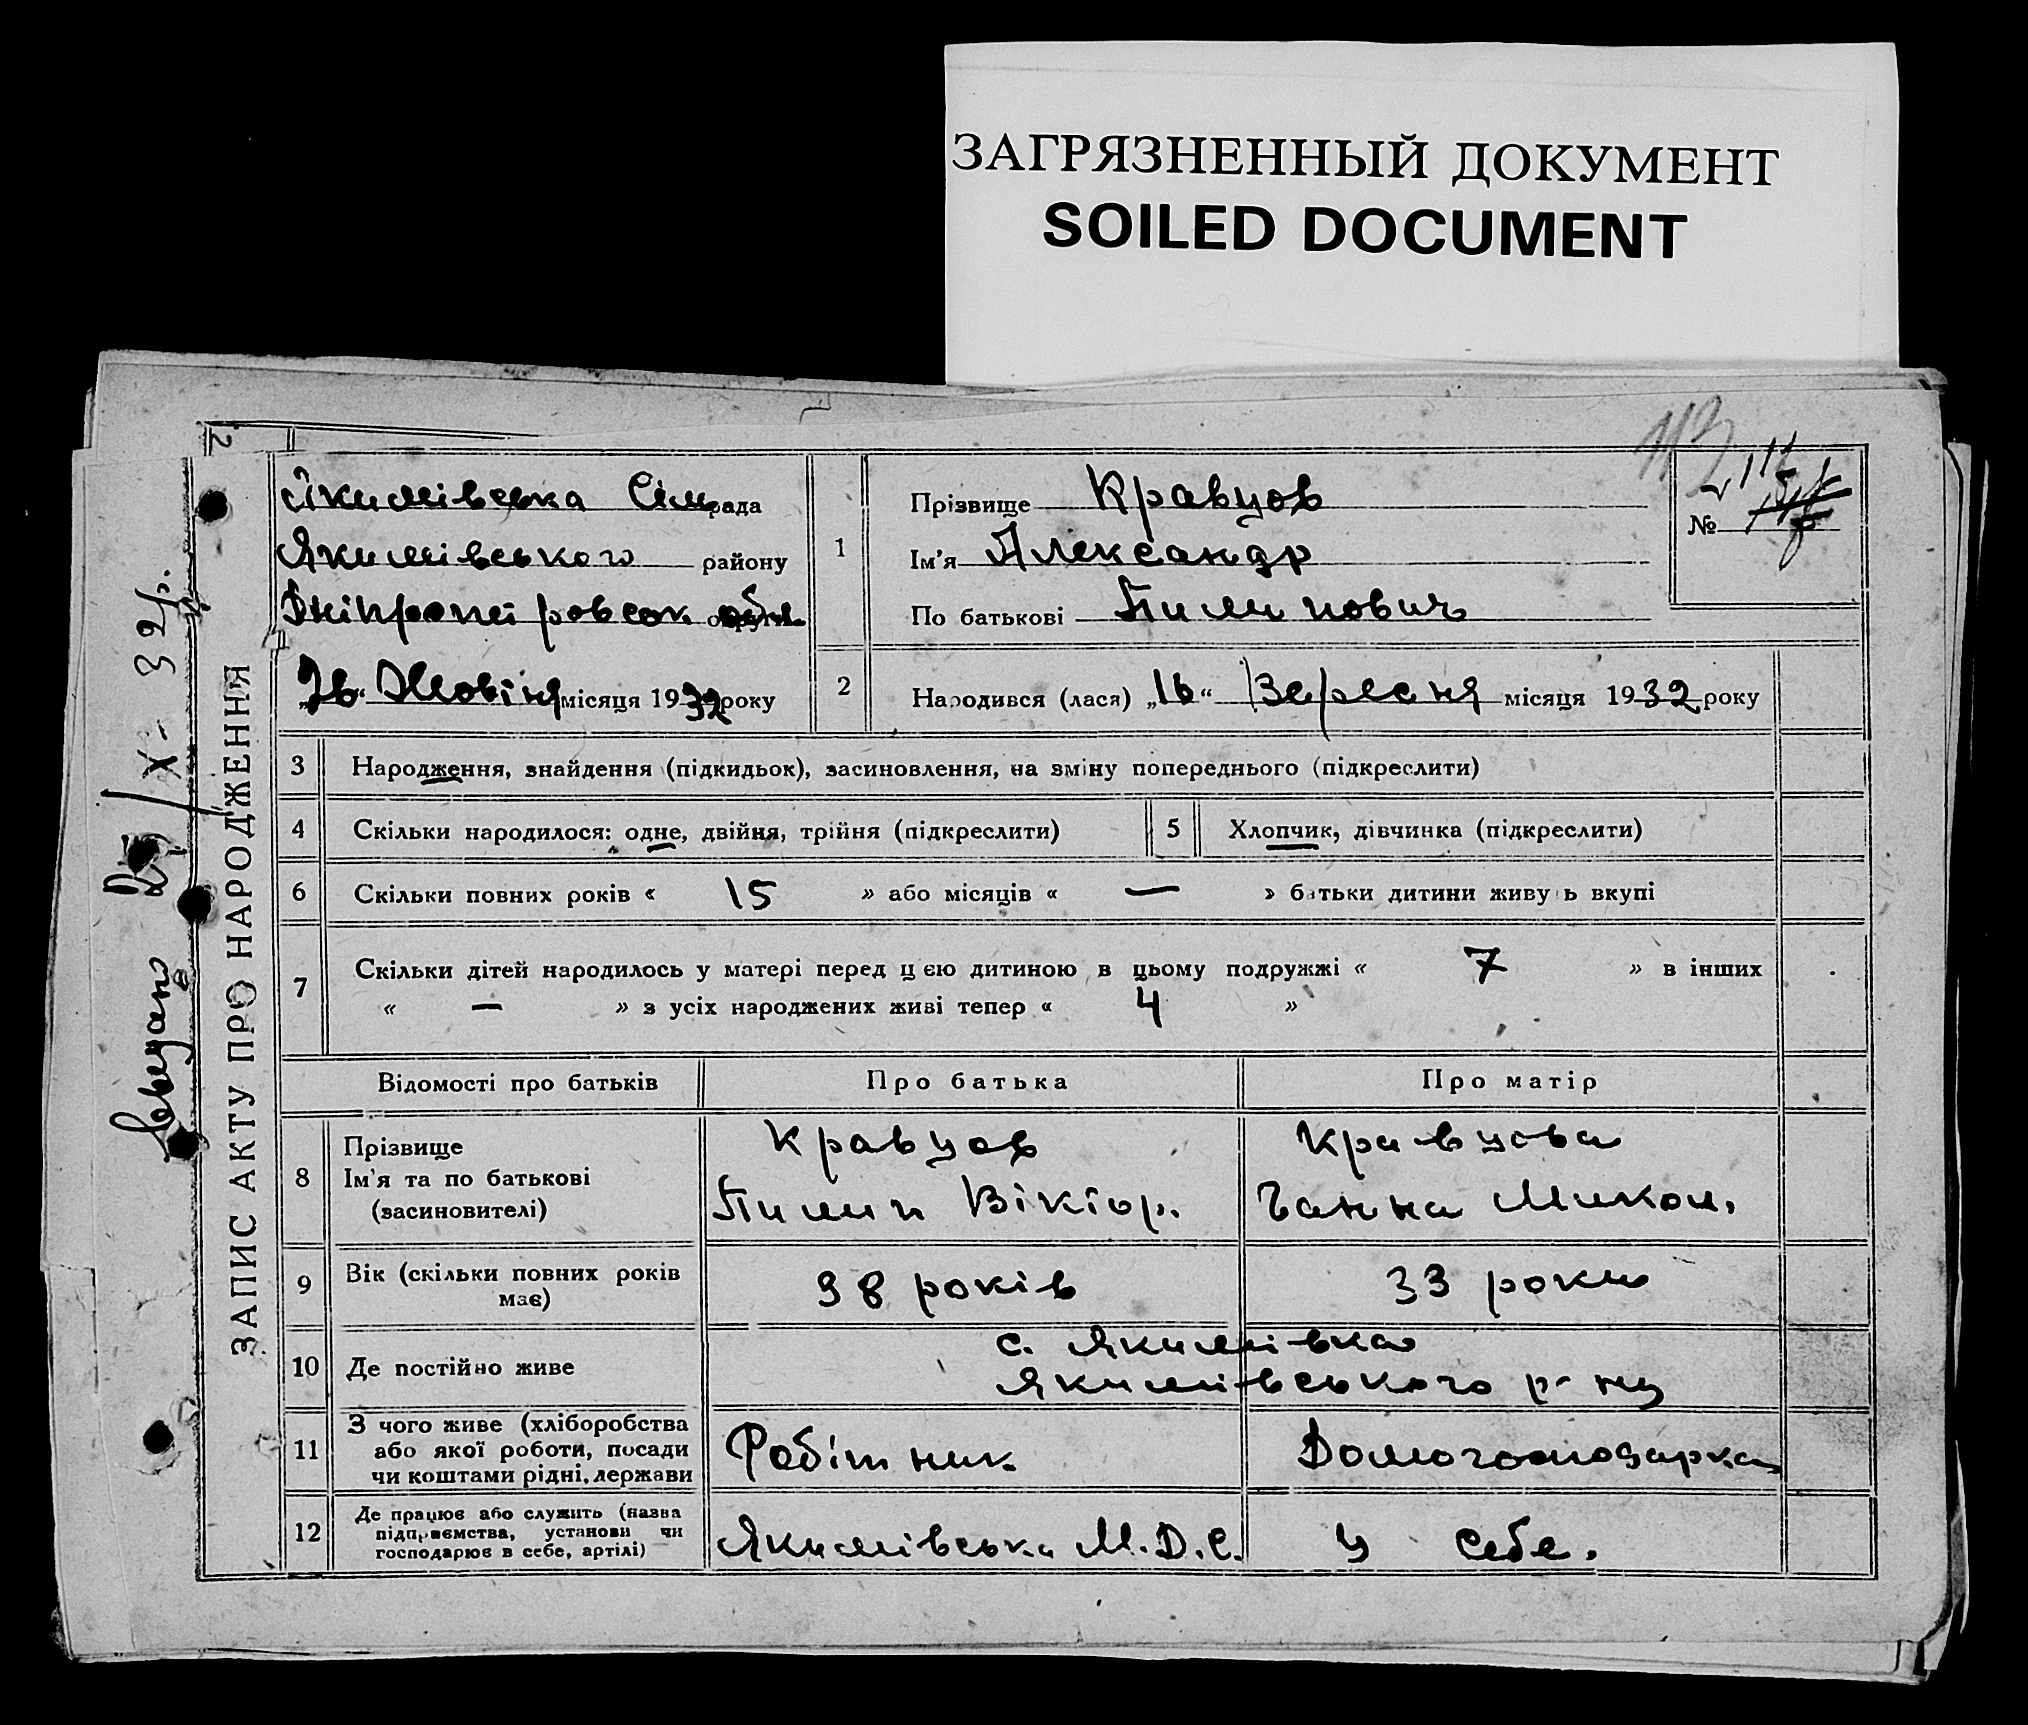 ЗАГРЯЗНЕННЫЙ ДОКУМЕНТ
SOILED DOCUMENT
113
2
ЗАПИС АКТУ ПРО НАРОДЖЕННЯ
Якимівська Сіль рада
Якимівського району
Дніпропетровськ обл.
„16“ Жовтня місяця 1932 року
1
Прізвище Кравцов
Ім'я Александр
По батькові Пилипович
№
2
Народився (лася) „16“ Вересня місяця 1932 року
3 Народження, знайдення (підкидьок), засиновлення, на зміну попереднього (підкреслити)
4 Скільки народилося: одне, двійня, трійня (підкреслити)
5 Хлопчик, дівчинка (підкреслити)
6 Скільки повних років « 15 » або місяців « — » батьки дитини живуть вкупі
7 Скільки дітей народилось у матері перед цією дитиною в цьому подружжі « 7 » в інших
« — » з усіх народжених живі тепер « 4 »
Відомості про батьків Про батька Про матір
8 Прізвище
Ім'я та по батькові
(засиновителі)
Кравцов
Пилип Віктор.
Кравцова
Ганна Микол.
9 Вік (скільки повних років
має)
38 років
33 роки
10 Де постійно живе
с. Якимівка
Якимівського р-ну
11 З чого живе (хліборобства
або якої роботи, посади
чи коштами рідні, держави
Робітник
Домогосподарка
12 Де працює або служить (назва
підприємства, установи чи
господарює в себе, артілі)
Якимівська М.Д.С.
У себе.